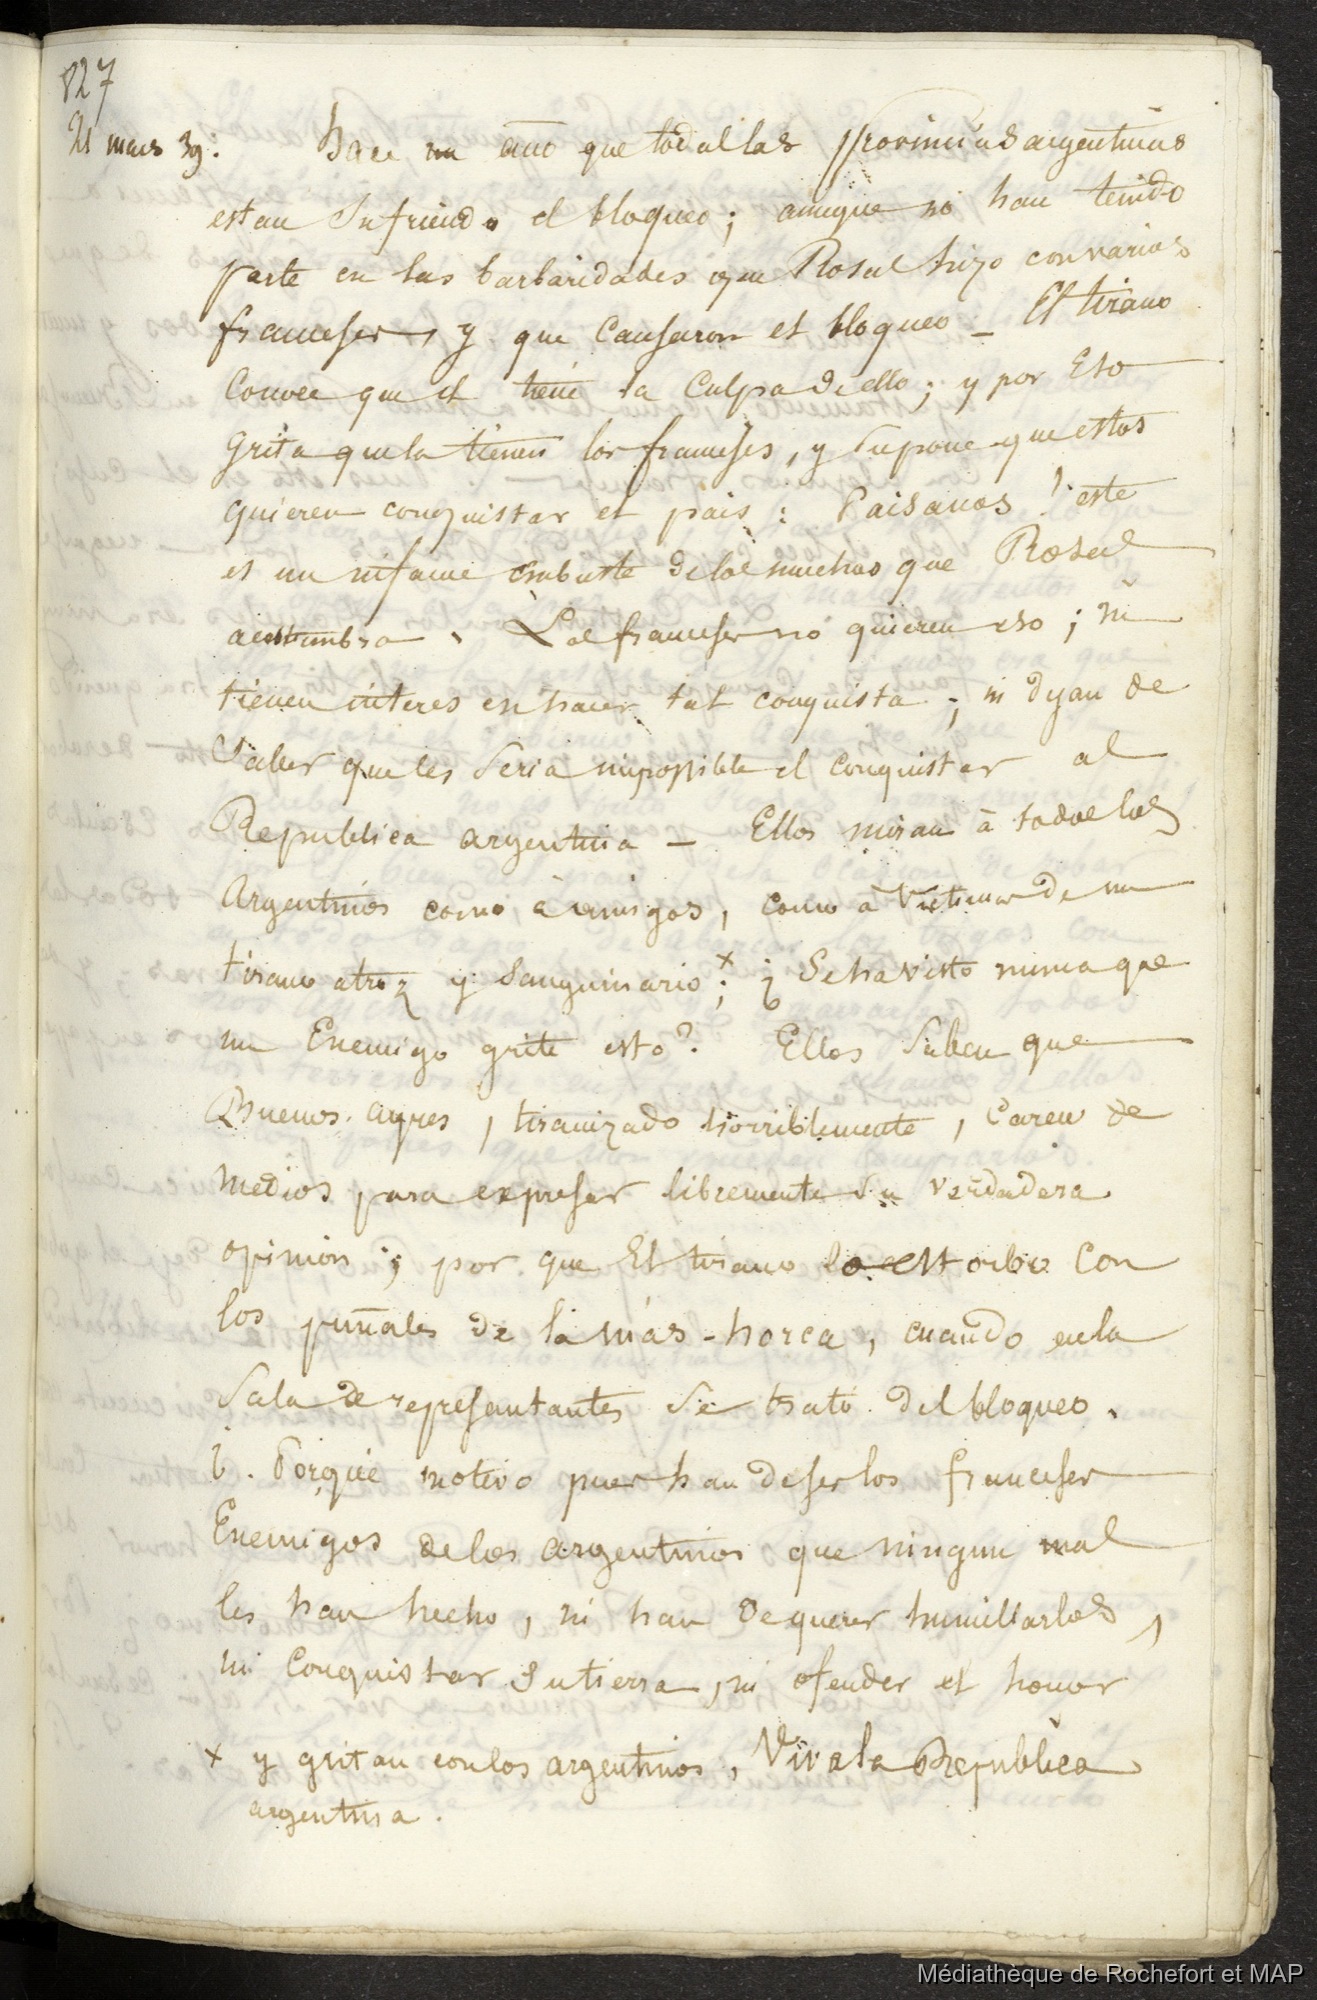 827
21 mars 39.
Hace un año que todas las provincias argentinas
estan Sufriendo el bloqueo; aunque no han tenido
parte en las barbaridades que Rosas hizo con varios
franceses, y que Causaron el bloqueo — El tirano
Conoce que el tiene la Culpa de ello; y por Eso
grita que la tienen los franceses, y Supone que estos
quieren conquistar el pais: Paisanos! este
es un infame embuste de los muchos que Rosas
acostumbra. Los franceses no quieren eso; ni
tienen interes en hacer tal conquista; ni dejan de
Saber que les Seria impossible el conquistar al
Republica argentina — Ellos miran à todos los
Argentinos como à amigos, como à Victimas de un
tirano atroz y Sanguinario x; ¿ Se ha visto nunca que
un Enemigo grite esto? Ellos Saben que
Buenos-ayres, tiranizado horriblemente, Carece de
Medios para expresar libremente Su verdadera
opinion; por que El tirano lo estorbo Con
los puñales de la más-horca, cuando en la
Sala de representantes Se trató del bloqueo.
¿. Porqué motivo pues han de ser los franceses
Enemigos de los argentinos que ningun mal
les han hecho, ni han de querer humillarlos,
ni Conquistar Su tierra, ni ofender el honor
x y gritan con los argentinos, Viva la Republica
argentina.
Médiathèque de Rochefort et MAP